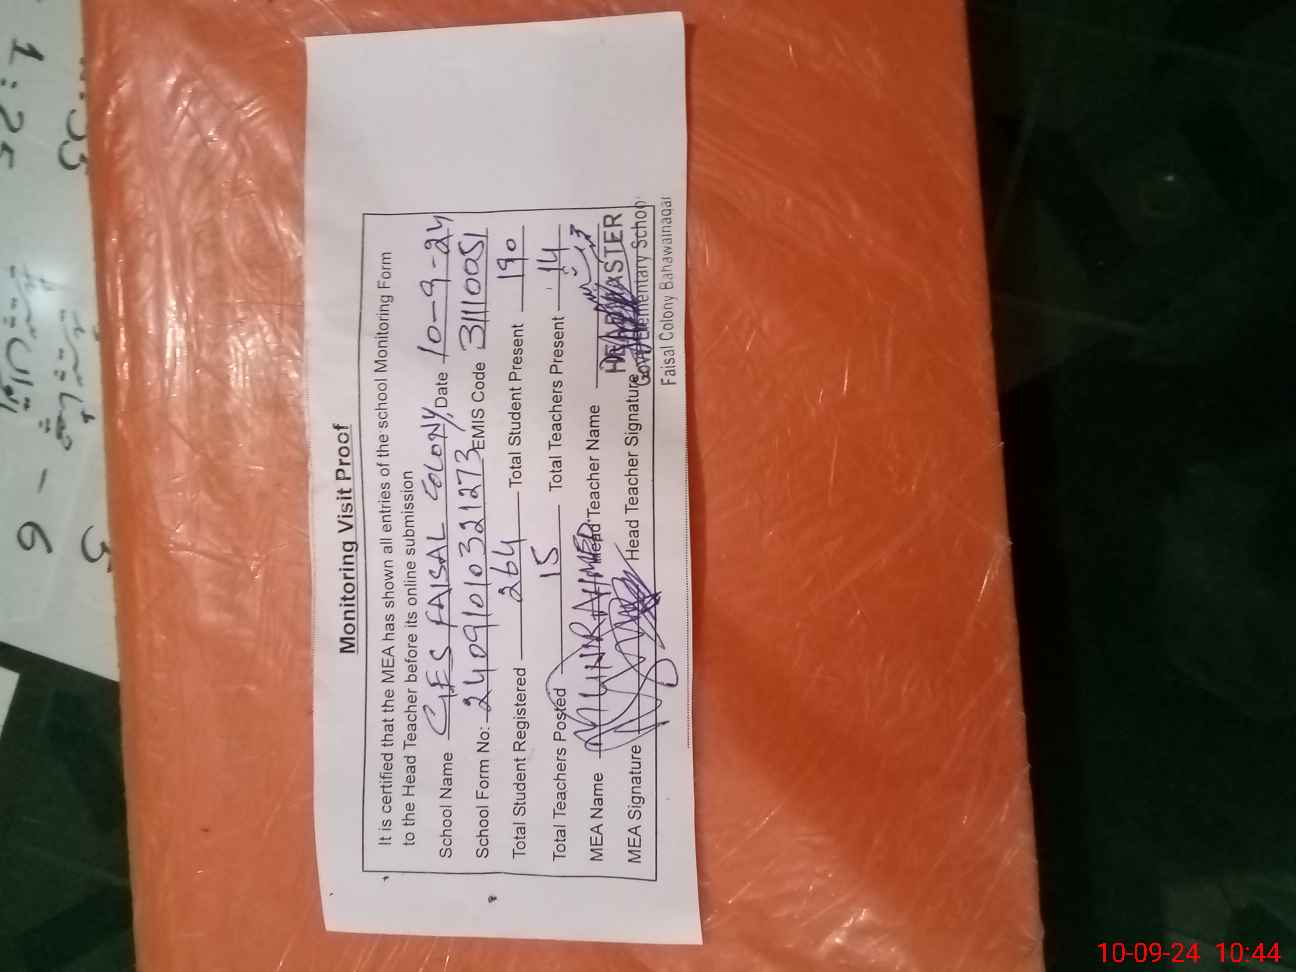 Monitoring Visit Proof
It is certified that the MEA has shown all entries of the school Monitoring Form
to the Head Teacher before its online submission
School Name GES FAISAL COLONY, Date 10-9-24
School Form No: 24091010321273 EMIS Code 31110051
Total Student Registered 264 Total Student Present 190
Total Teachers Posted 15 Total Teachers Present 14
MEA Name MUNIR AHMED Head Teacher Name
MEA Signature Head Teacher Signature
HEADMASTER
Govt. Elementary School
Faisal Colony Bahawalnagar
1:25
:35
6
3
10-09-24 10:44